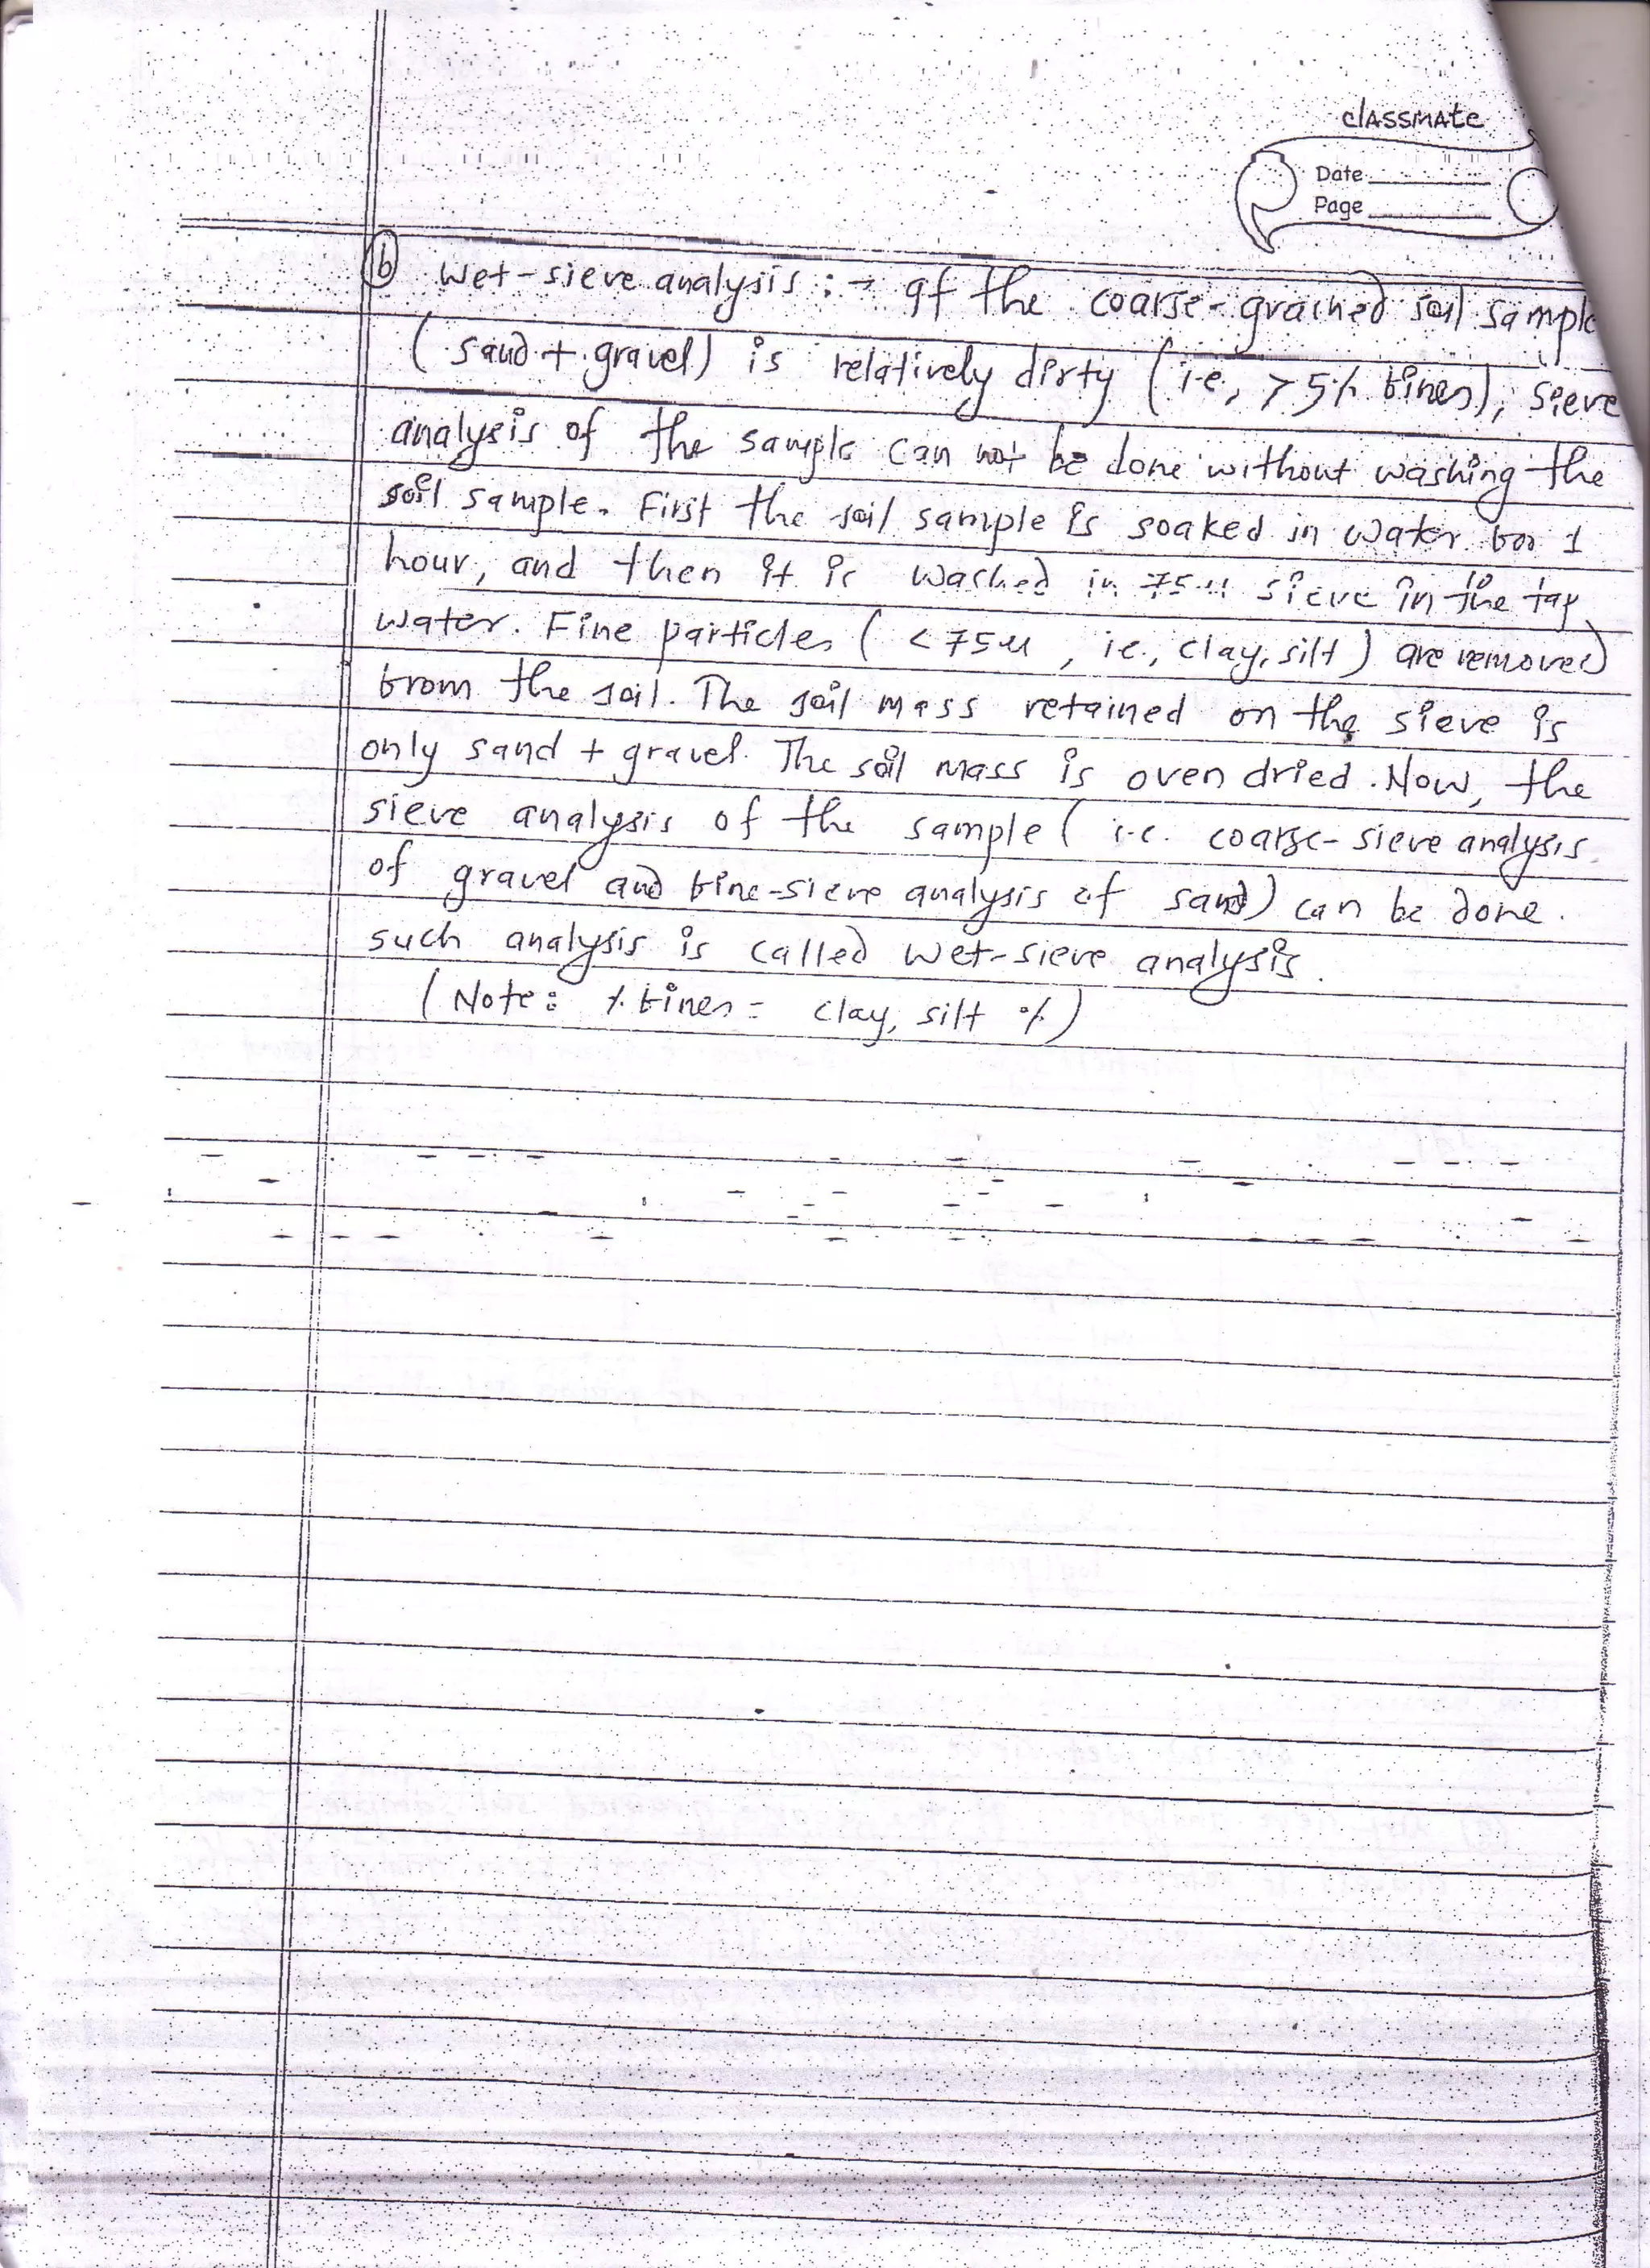 classmate
Date
Page
(b) Wet-sieve analysis :→ If the coarse-grained soil sample
(sand + gravel) is relatively dirty (i.e., > 5% fines), sieve
analysis of the sample can not be done without washing the
soil sample. First the soil sample is soaked in water for 1
hour, and then it is washed in 75 μ sieve in the tap
water. Fine particles ( < 75 μ , ie., clay, silt ) are removed
from the soil. The soil mass retained on the sieve is
only sand + gravel. The soil mass is oven dried. Now, the
sieve analysis of the sample ( i.e. coarse-sieve analysis
of gravel and fine-sieve analysis of sand) can be done.
such analysis is called wet-sieve analysis.
(Note: % fines = clay, silt %)